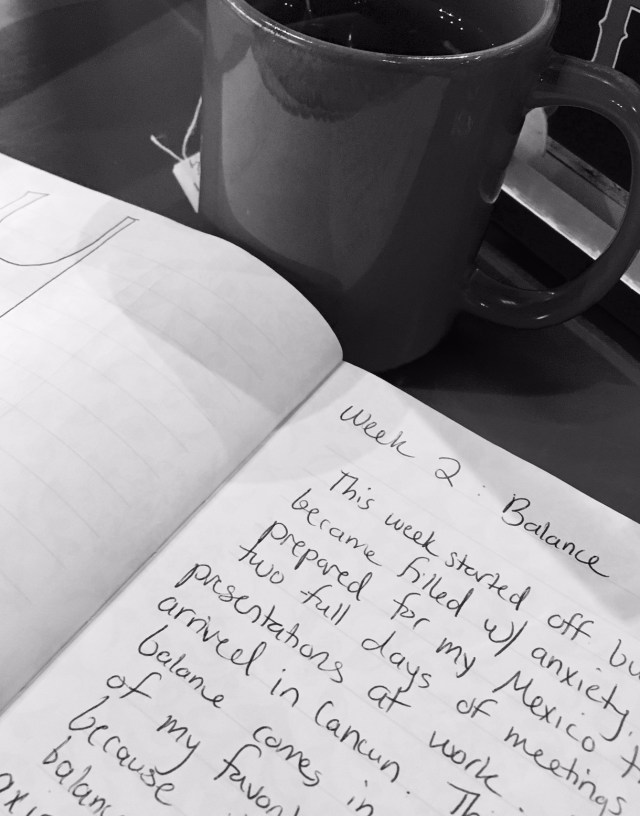 Week 2: Balance
This week started off bu
became filled w/ anxiety.
prepared for my Mexico t
two full days of meetings
presentations at work.
arrived in Cancun. Th
balance comes in
of my favori
because
balanc
axi